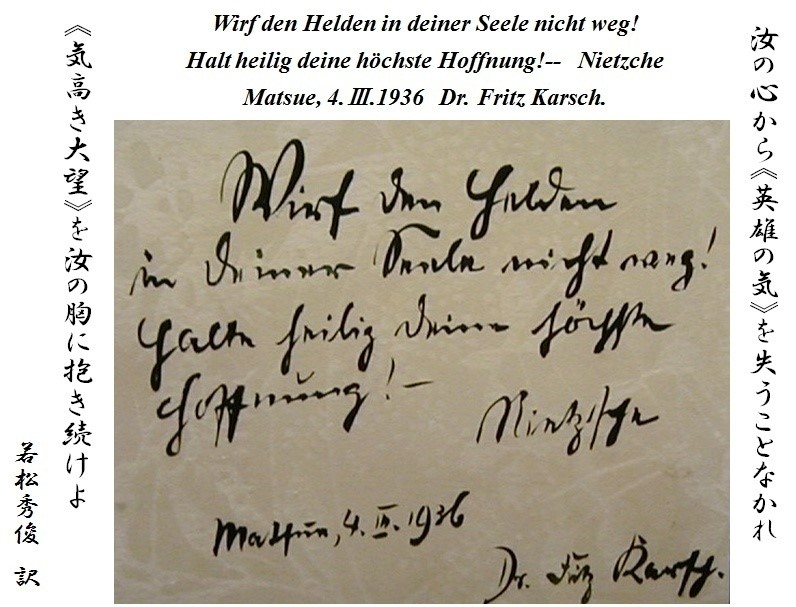 Wirf den Helden in deiner Seele nicht weg!
Halt heilig deine höchste Hoffnung!-- Nietzche
Matsue, 4. Ⅲ.1936 Dr. Fritz Karsch.
汝の心から《英雄の気》を失うことなかれ
《気高き大望》を汝の胸に抱き続けよ
若松秀俊 訳
Wirf den Helden
in deiner Seele nicht weg!
Halte heilig deine höchste
Hoffnung! —
Nietzsche
Matsue, 4. III. 1936
Dr. Fritz Karsch.